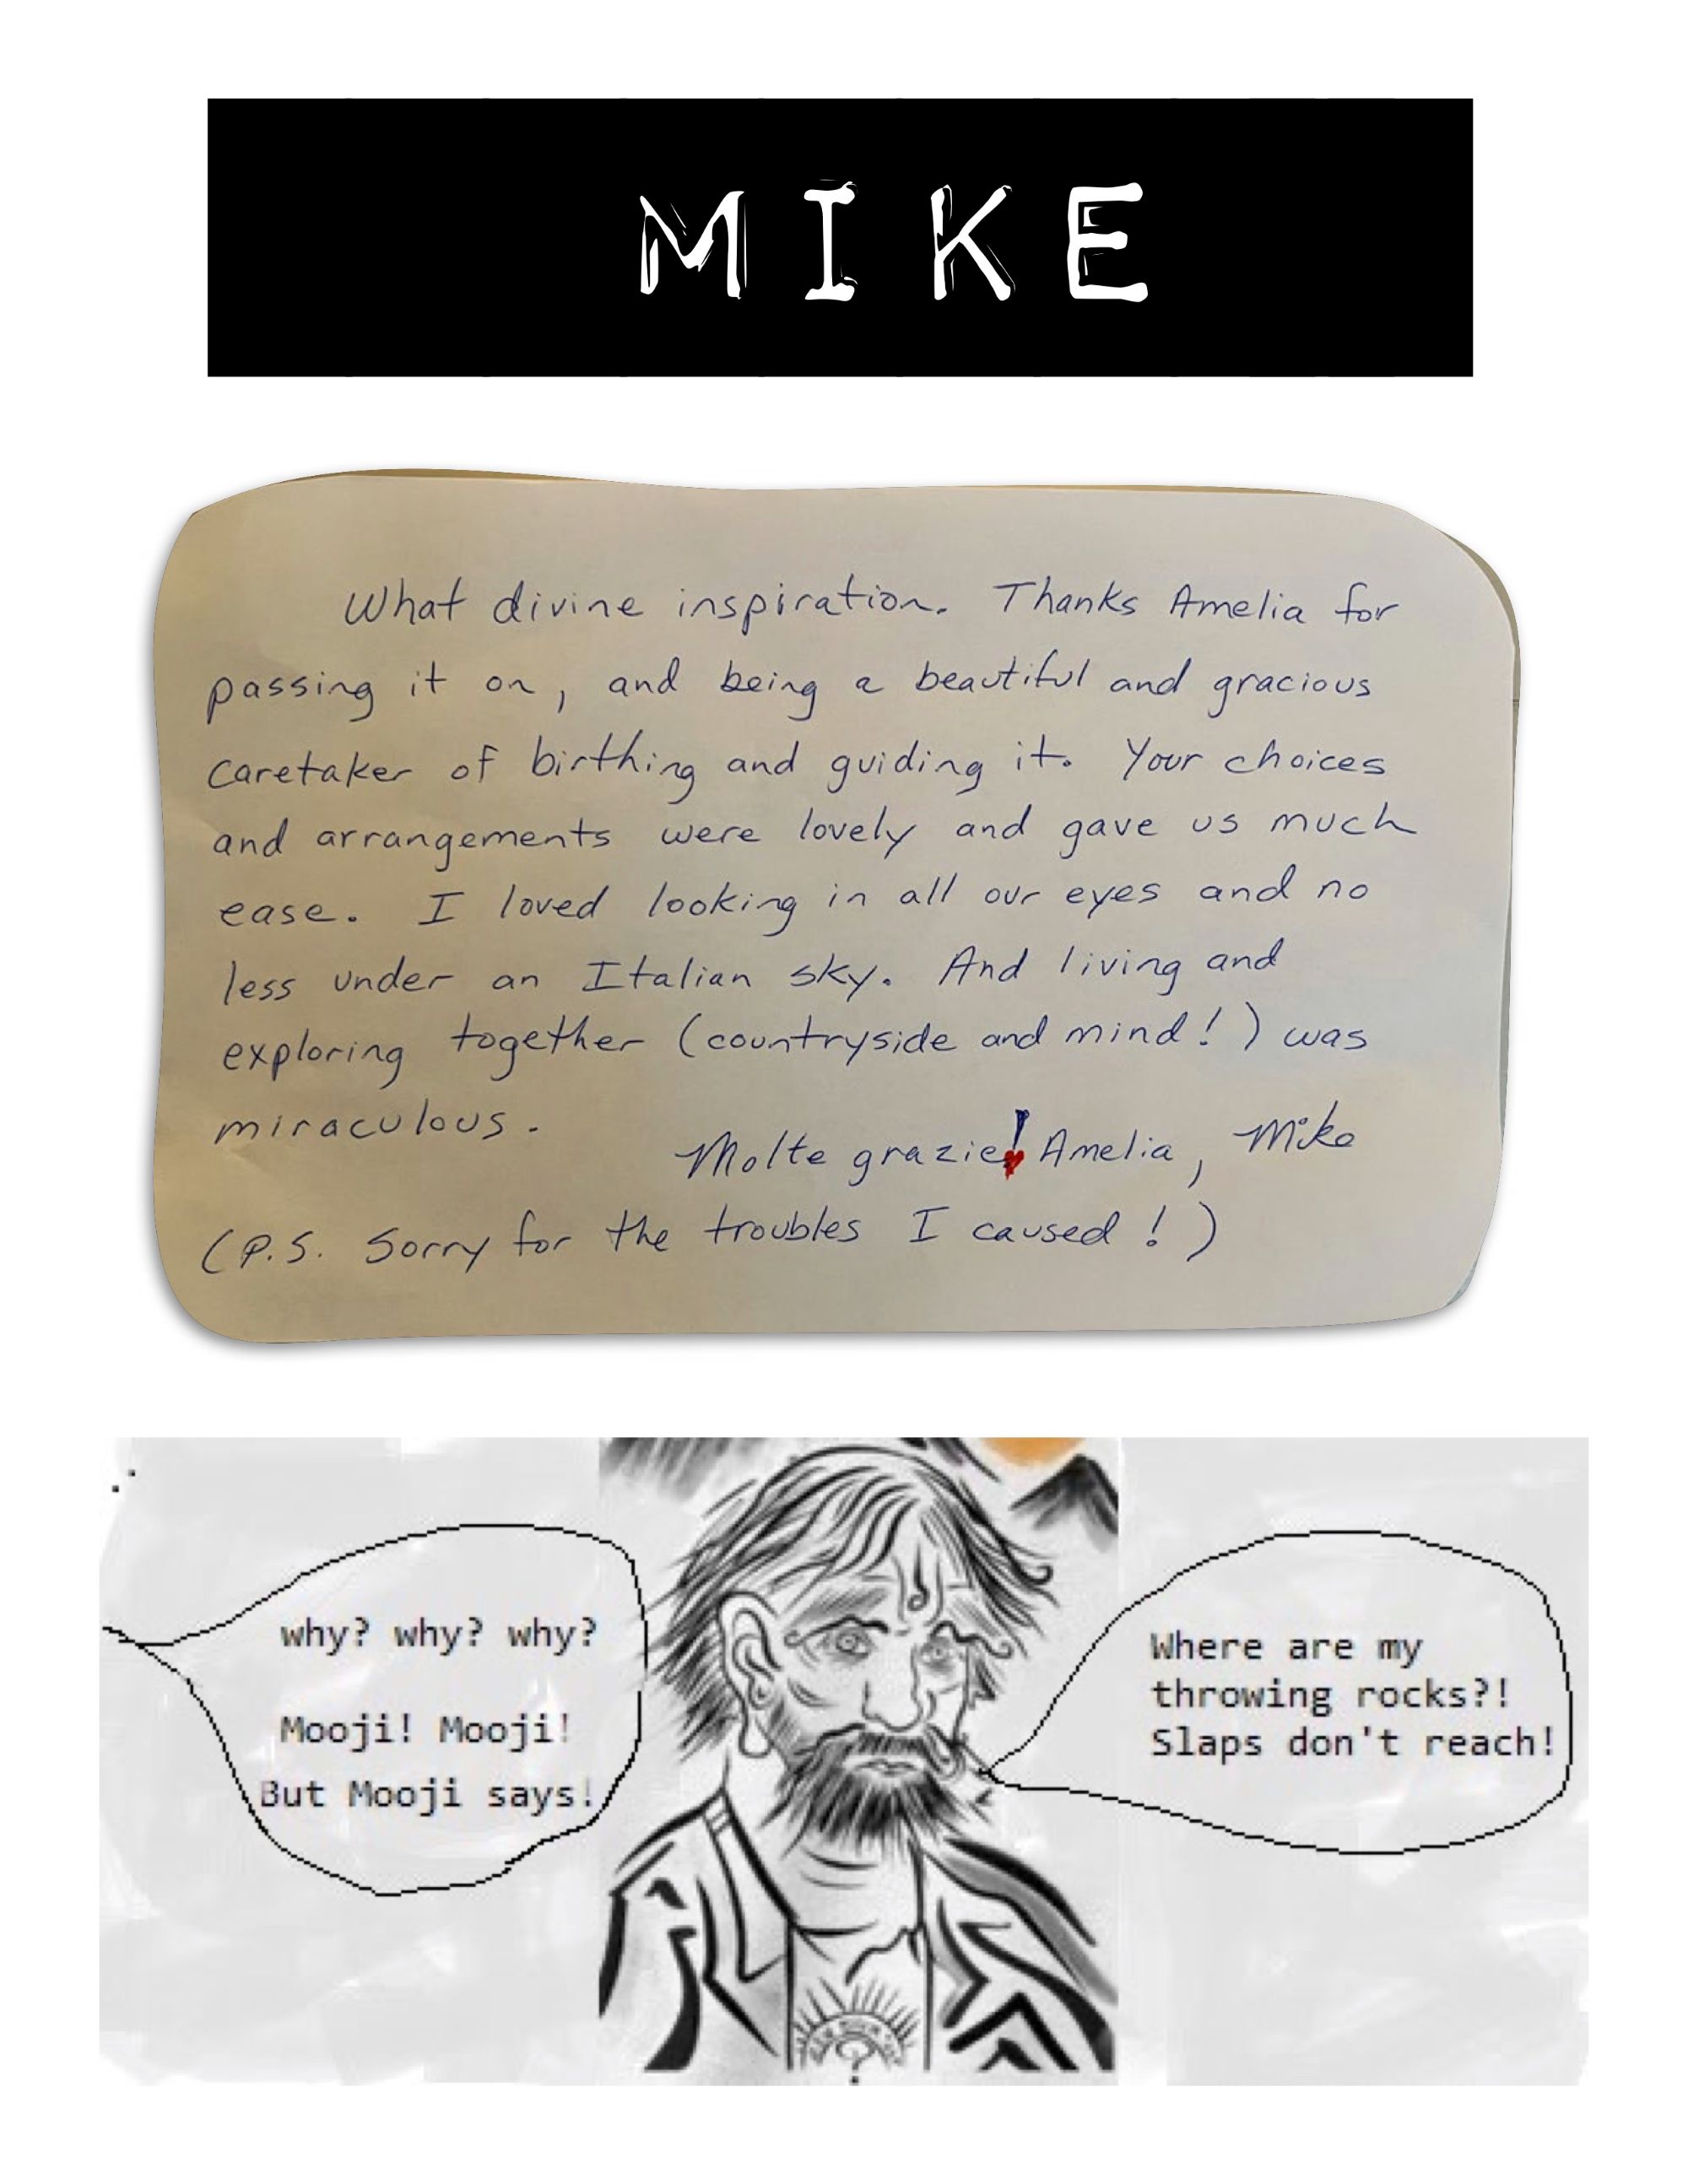 MIKE
What divine inspiration. Thanks Amelia for
passing it on, and being a beautiful and gracious
caretaker of birthing and guiding it. Your choices
and arrangements were lovely and gave us much
ease. I loved looking in all our eyes and no
less under an Italian sky. And living and
exploring together (countryside and mind!) was
miraculous.
Molte grazie! Amelia, Mike
(P.S. Sorry for the troubles I caused!)
why? why? why?
Mooji! Mooji!
But Mooji says!
Where are my
throwing rocks?!
Slaps don't reach!